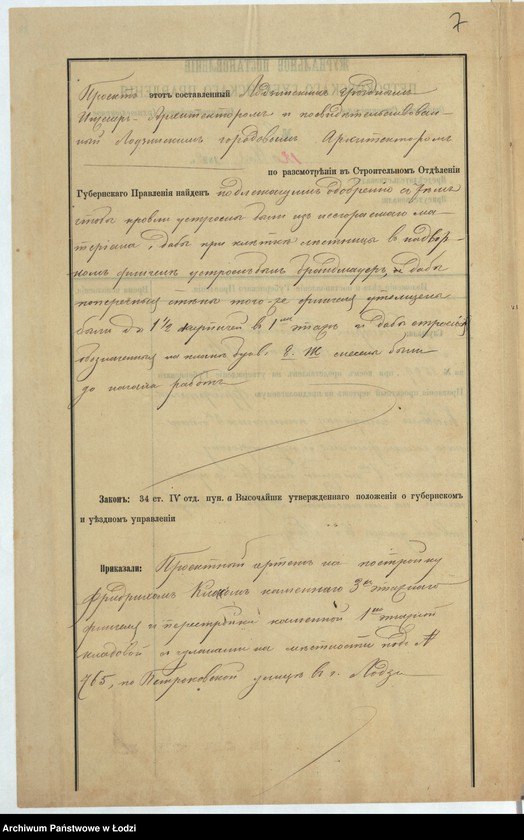 7
Проектъ этотъ составленный
Инженеръ-Архитекторомъ и
Лодзинскимъ городовымъ Архитекторомъ
по разсмотрѣніи въ Строительномъ Отдѣленіи
Губернскаго Правленія найденъ подлежащимъ одобренію съ тѣмъ
чтобы кровли устроены были изъ несгораемаго ма-
теріала, дабы при клѣткѣ лѣстницы въ надвор-
номъ флигелѣ устроенъ былъ брандмауеръ, дабы
поперечныя стѣны того-же флигеля утолщены
были до 1½ кирпичей въ 1мъ этажѣ и дабы строенія
обозначенныя на планѣ букв. снесены были
до начала работъ
Законъ: 34 ст. IV отд. пун. а Высочайше утвержденнаго положенія о губернскомъ
и уѣздномъ управленіи
Приказали: Проектный чертежъ на постройку
Фридрихомъ каменнаго 3хъ этажнаго
флигеля и перестройки каменной 1но этажной
кладовой на мѣстности подъ №
765, по Петроковской улицѣ въ г. Лодзи
Archiwum Państwowe w Łodzi